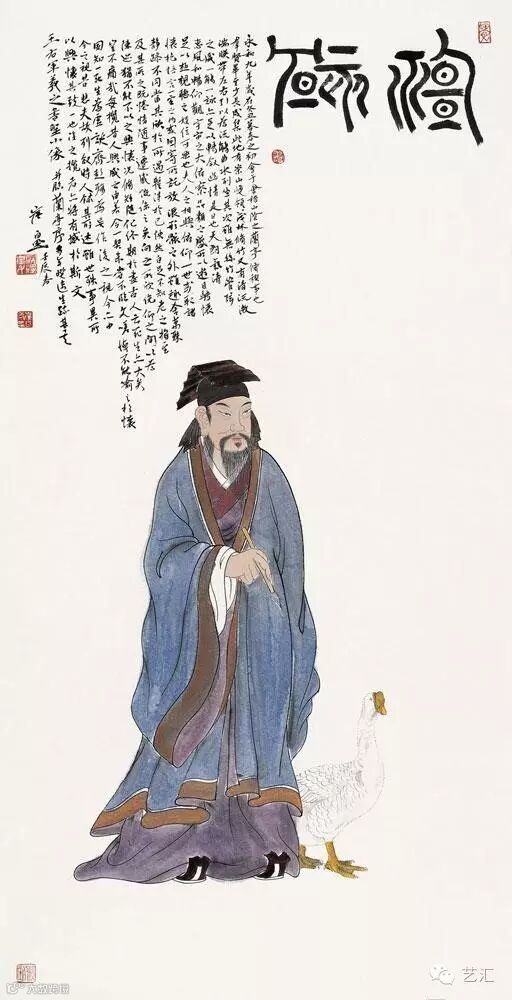 永和九年歲在癸丑暮春之初會于會稽山陰之蘭亭脩禊事也
羣賢畢至少長咸集此地有崇山峻領茂林脩竹又有清流激
湍暎帶左右引以為流觴曲水列坐其次雖無絲竹管弦
之盛一觴一詠亦足以暢敘幽情是日也天朗氣清
惠風和暢仰觀宇宙之大俯察品類之盛所以遊目騁懷
足以極視聽之娛信可樂也夫人之相與俯仰一世或取諸
懷抱悟言一室之內或因寄所託放浪形骸之外雖趣舍萬殊
靜躁不同當其欣於所遇蹔得於己快然自足不知老之將至
及其所之既惓情隨事遷感慨係之矣向之所欣俛仰之間以為
陳迹猶不能不以之興懷況脩短隨化終期於盡古人云死生亦大矣
豈不痛哉每攬昔人興感之由若合一契未嘗不臨文嗟悼不能喻之於懷
固知一死生為虛誕齊彭殤為妄作後之視今亦由
今之視昔悲夫故列敘時人錄其所述雖世殊事異所
以興懷其致一也後之攬者亦將有感於斯文
王右軍羲之書聖小像 并臨蘭亭序
壬辰春
艺汇
大叔跨境